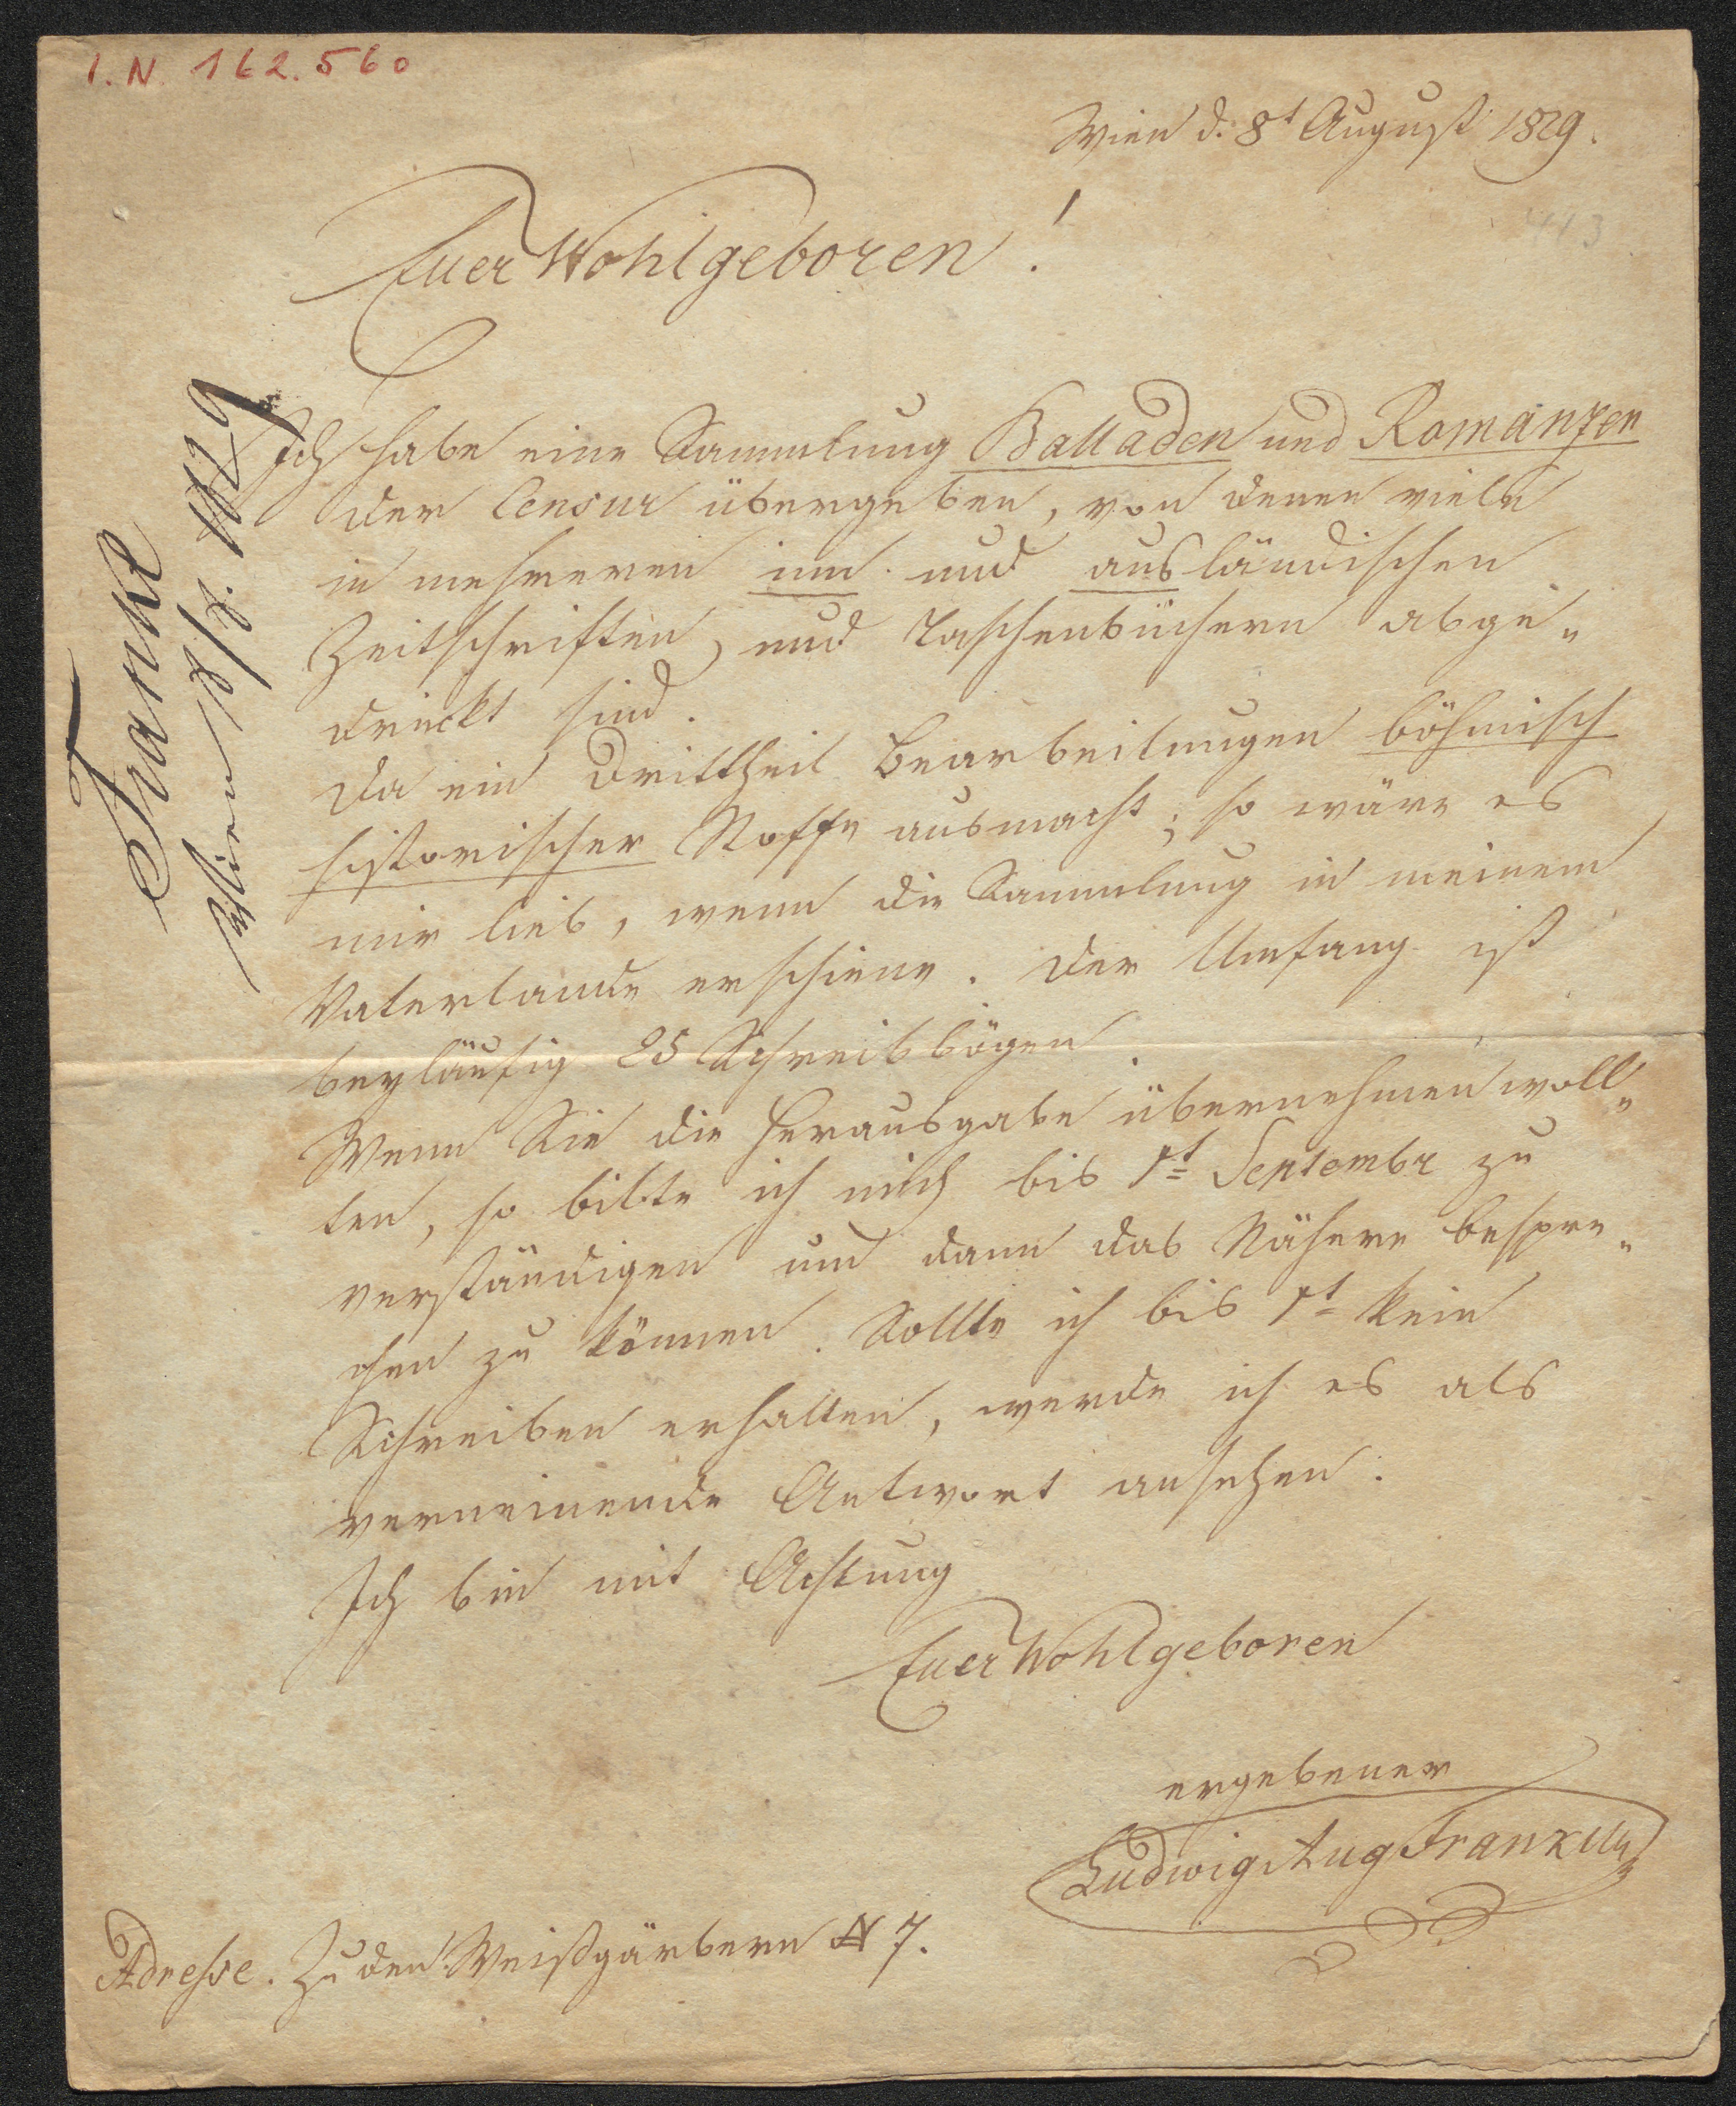 I.N. 162.560
Wien d. 8t August 1829.
413
Euer Wohlgeboren!
Ich habe eine Sammlung Balladen und Romanzen
der Censur übergeben, von denen viele
in mehreren inn- und ausländischen
Zeitschriften, und Taschenbüchern abge„
druckt sind.
Da ein Drittheil Bearbeitungen böhmisch
historischer Stoffe ausmacht; so wäre es
mir lieb, wenn die Sammlung in meinem
Vaterlande erschiene. Der Umfang ist
beyläufig 25 Schreibbögen.
Wenn Sie die Herausgabe übernehmen woll„
ten, so bitte ich mich bis 1t Septembr zu
verständigen um dann das Nähere bespre„
chen zu können. Sollte ich bis 1t kein
Schreiben erhalten, werde ich es als
verneinende Antwort ansehen.
Ich bin mit Achtung
Euer Wohlgeboren
ergebener
Ludwig Aug Frankl
Adresse. Zu den Weißgärbern N 7.
Frankl
Wien 8/8. 1829